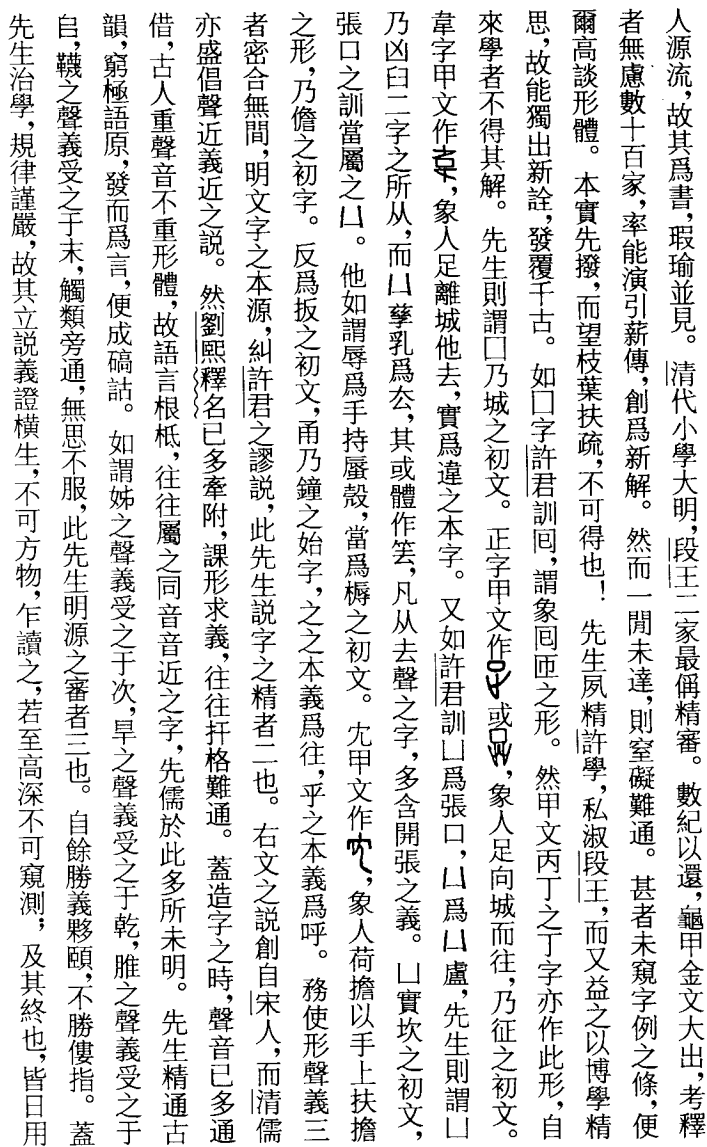 人源流，故其爲書，瑕瑜並見。清代小學大明，段王二家最偁精審。數紀以還，龜甲金文大出，考釋
者無慮數十百家，率能演引薪傳，創爲新解。然而一閒未達，則窒礙難通。甚者未窺字例之條，便
爾高談形體。本實先撥，而望枝葉扶疏，不可得也！先生夙精許學，私淑段王，而又益之以博學精
思，故能獨出新詮，發覆千古。如囗字許君訓回，謂象回帀之形。然甲文丙丁之丁字亦作此形，自
來學者不得其解。先生則謂囗乃城之初文。正字甲文作或，象人足向城而往，乃征之初文。
韋字甲文作，象人足離城他去，實爲違之本字。又如許君訓凵爲張口，𠙴爲𠙴盧，先生則謂凵
乃凶臼二字之所从，而𠙴孳乳爲厺，其或體作筶，凡从去聲之字，多含開張之義。凵實坎之初文，
張口之訓當屬之𠙴。他如謂辱爲手持蜃殼，當爲槈之初文。冘甲文作，象人荷擔以手上扶擔
之形，乃儋之初字。反爲扳之初文，甬乃鐘之始字，之之本義爲往，乎之本義爲呼。務使形聲義三
者密合無間，明文字之本源，糾許君之謬説，此先生説字之精者二也。右文之説創自宋人，而清儒
亦盛倡聲近義近之説。然劉熙釋名已多牽附，課形求義，往往扞格難通。蓋造字之時，聲音已多通
借，古人重聲音不重形體，故語言根柢，往往屬之同音音近之字，先儒於此多所未明。先生精通古
韻，窮極語原，發而爲言，便成碻詁。如謂姊之聲義受之于次，旱之聲義受之于乾，脽之聲義受之于
𠂤，韈之聲義受之于末，觸類旁通，無思不服，此先生明源之審者三也。自餘勝義夥頤，不勝僂指。蓋
先生治學，規律謹嚴，故其立説義證橫生，不可方物，乍讀之，若至高深不可窺測；及其終也，皆日用